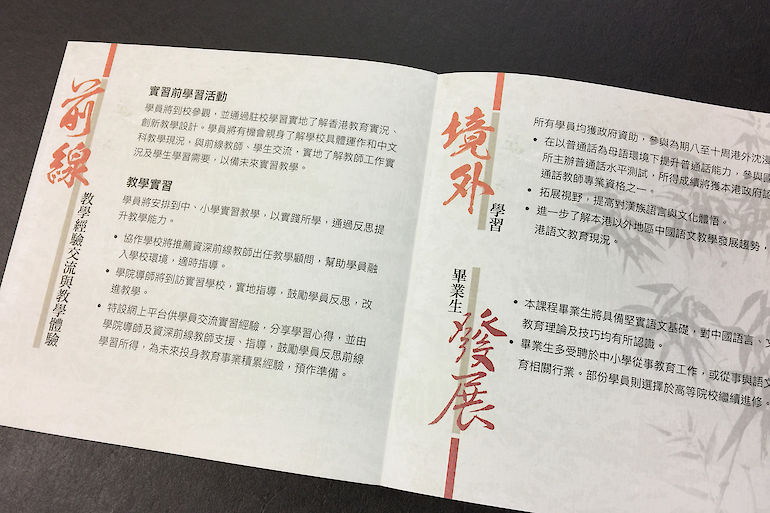 前線
教學經驗交流與教學體驗
實習前學習活動
學員將到校參觀，並通過駐校學習實地了解香港教育實況、
創新教學設計。學員將有機會親身了解學校具體運作和中文
科教學現況，與前線教師、學生交流，實地了解教師工作實
況及學生學習需要，以備未來實習教學。
教學實習
學員將安排到中、小學實習教學，以實踐所學，通過反思提
升教學能力。
• 協作學校將推薦資深前線教師出任教學顧問，幫助學員融
入學校環境，適時指導。
• 學院導師將到訪實習學校，實地指導，鼓勵學員反思，改
進教學。
• 特設網上平台供學員交流實習經驗，分享學習心得，並由
學院導師及資深前線教師支援、指導，鼓勵學員反思前線
學習所得，為未來投身教育事業積累經驗，預作準備。
境外
學習
所有學員均獲政府資助，參與為期八至十周港外沈浸
• 在以普通話為母語環境下提升普通話能力，參與國
所主辦普通話水平測試，所得成績將獲本港政府認
通話教師專業資格之一。
• 拓展視野，提高對漢族語言與文化體悟。
• 進一步了解本港以外地區中國語文教學發展趨勢，
港語文教育現況。
畢業生
發展
• 本課程畢業生將具備堅實語文基礎，對中國語言、文
教育理論及技巧均有所認識。
• 畢業生多受聘於中小學從事教育工作，或從事與語文
育相關行業。部份學員則選擇於高等院校繼續進修。